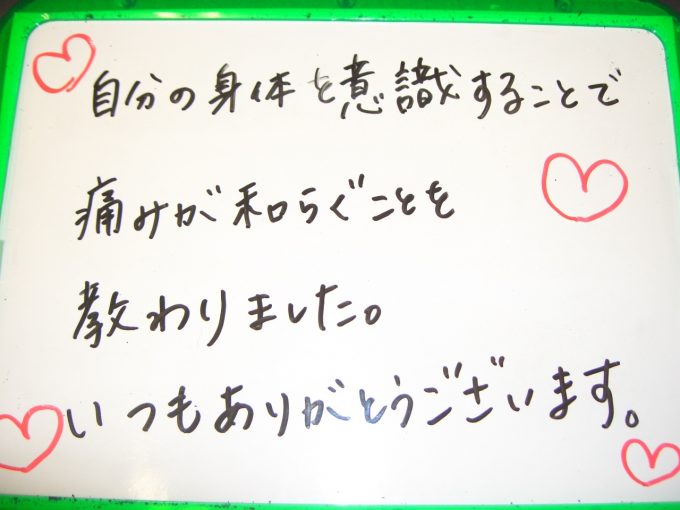 自分の身体を意識することで
痛みが和らぐことを
教わりました。
いつもありがとうございます。